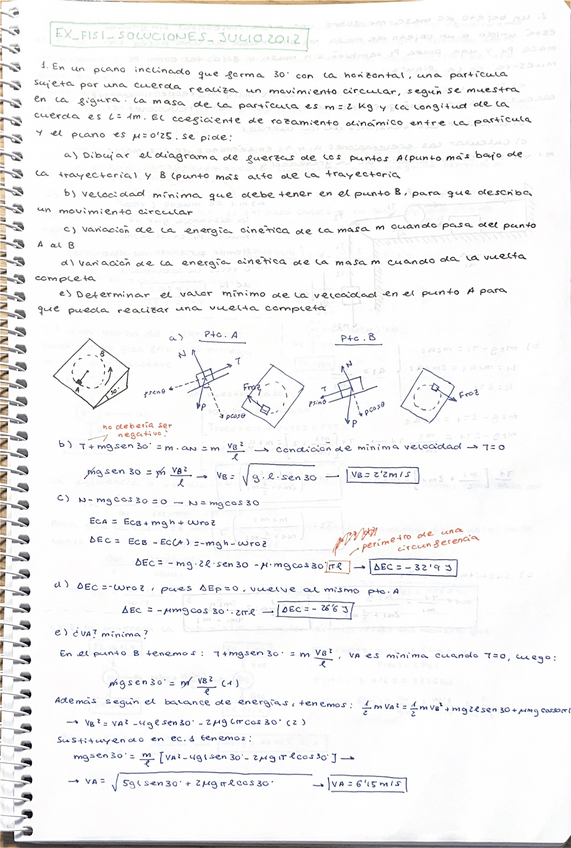 EX_FISI_SOLUCIONES_JULIO 2012
1. En un plano inclinado que forma 30° con la horizontal, una partícula
sujeta por una cuerda realiza un movimiento circular, según se muestra
en la figura. La masa de la partícula es m=2 Kg y la longitud de la
cuerda es L=1m. El coeficiente de rozamiento dinámico entre la partícula
y el plano es μ=0'25. Se pide:
a) Dibujar el diagrama de fuerzas de los puntos A (punto más bajo de
la trayectoria) y B (punto más alto de la trayectoria
b) Velocidad mínima que debe tener en el punto B, para que describa
un movimiento circular
c) Variación de la energía cinética de la masa m cuando pasa del punto
A al B
d) Variación de la energía cinética de la masa m cuando da la vuelta
completa
e) Determinar el valor mínimo de la velocidad en el punto A para
que pueda realizar una vuelta completa
a) Pto. A Pto. B
B
A
30°
N
T
psenθ
pcosθ
P
Froz
N
T
psenθ
pcosθ
P
Froz
no debería ser
negativo?
b) T+mgsen30°=m·aN=m VB²/l → Condición de mínima velocidad → T=0
mgsen30°=m VB²/l → VB=√g·l·sen30 → VB=2'2m/s
c) N-mgcos30=0 → N=mgcos30
ECA = ECB+mgh+Wroz
ΔEC = ECB-EC(A)=-mgh-Wroz
perímetro de una
circunferencia
ΔEC=-mg·2l·sen30-μ·mgcos30°πl → ΔEC=-32'9J
d) ΔEC=-Wroz, pues ΔEp=0, vuelve al mismo pto. A
ΔEC=-μmgcos30°·2πl → ΔEC=-26'6J
e) ¿VA? mínima?
En el punto B tenemos: T+mgsen30°=m VB²/l, VA es mínima cuando T=0, luego:
mgsen30°=m VB²/l (1)
Además según el balance de energías, tenemos: 1/2mVA²=1/2mVB²+mg2lsen30+μmgcos30πl
→ VB²=VA²-4glsen30-2μglπcos30° (2)
Sustituyendo en ec.1 tenemos:
mgsen30°=m/l [VA²-4glsen30°-2μgπlcos30°] →
→ VA=√5glsen30°+2μgπlcos30° → VA=6'15m/s